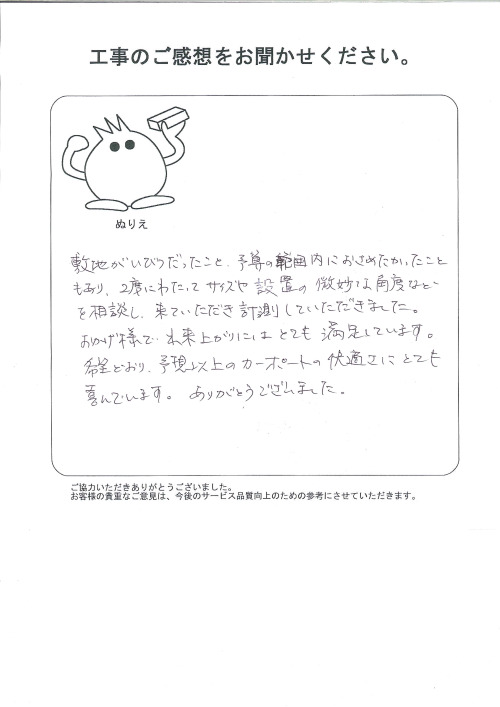 工事のご感想をお聞かせください。
ぬりえ
敷地がいびつだったこと、予算の範囲内におさめたかったこと
もあり、2度にわたって サイズや 設置の 微妙な角度など
を相談し、来ていただき 計測していただきました。
おかげ様で 出来上がりには とても 満足しています。
希望どおり、予想以上の カーポートの 快適さに とても
喜んでいます。 ありがとうございました。
ご協力いただきありがとうございました。
お客様の貴重なご意見は、今後のサービス品質向上のための参考にさせていただきます。